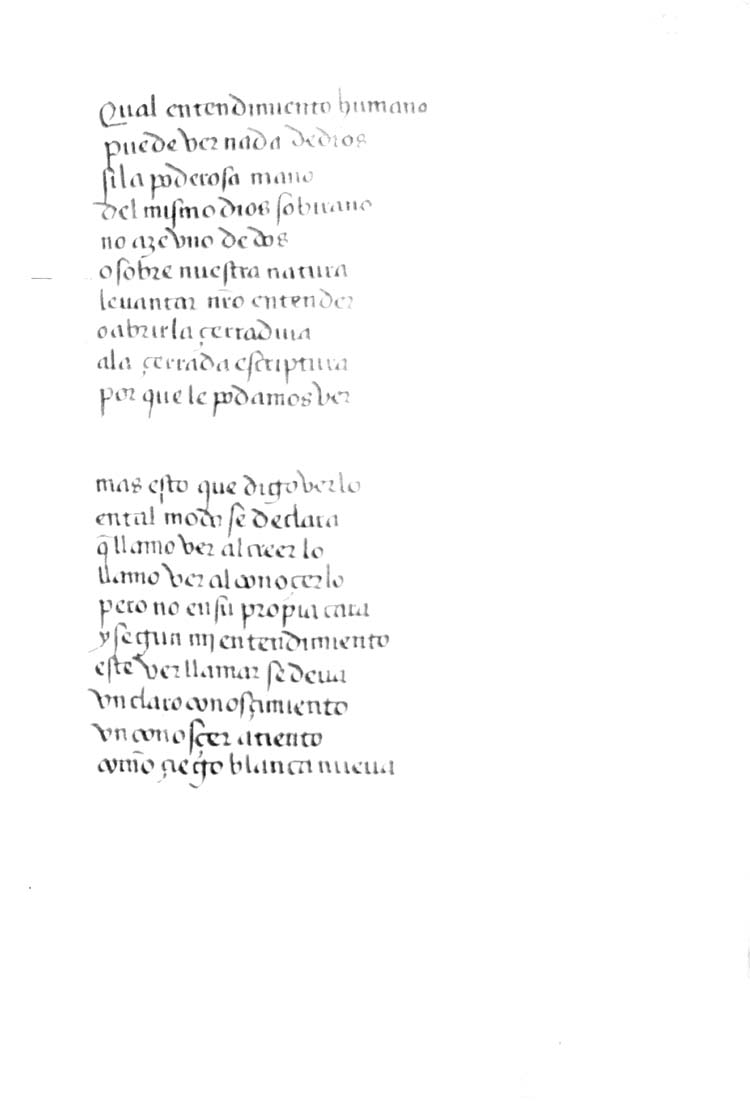 Qual entendimiento humano
puede ver nada dedios
sila poderosa mano
del mismo dios sobirano
no aze vno de dos
o sobre nuestra natura
leuantar nr̃o entender
o abrirla çerradura
ala çerrada escriptura
por que le podamos ver
mas esto que digo verlo
ental modo se declara
q̃ llamo ver al creer lo
llamo ver al conoçerlo
pero no ensu propia cara
y segun mj entendimiento
este ver llamar se deua
vn claro conosçimiento
vn conosçer atiento
como çiego blanca nueua